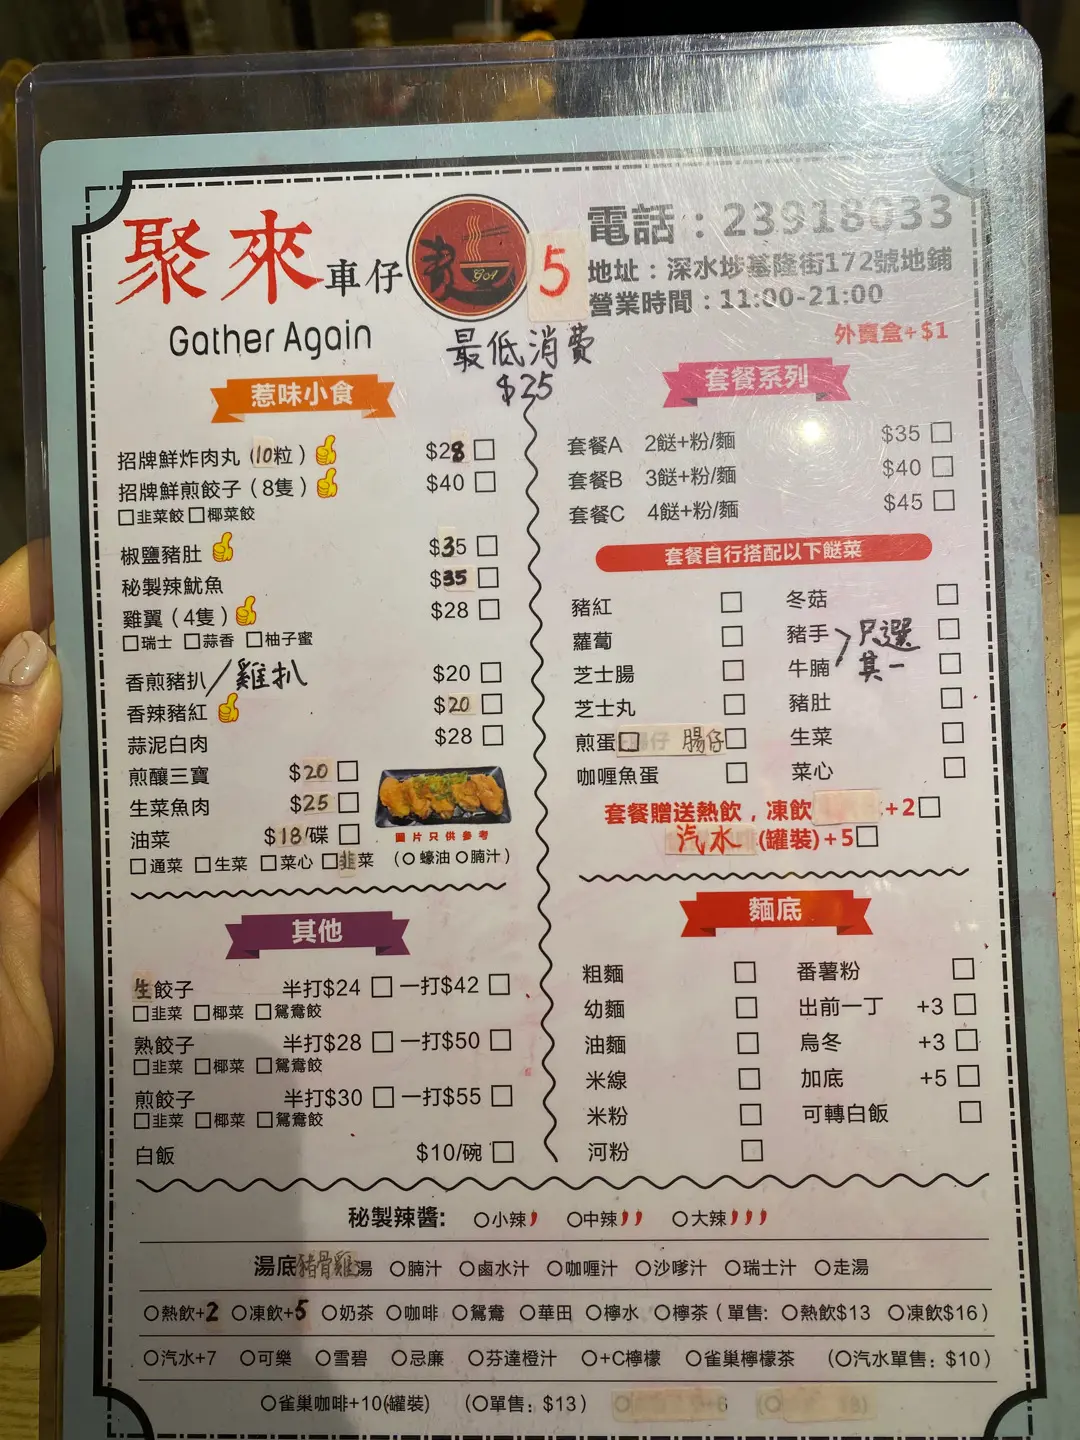 聚來車仔
Gather Again
5
電話：23918033
地址：深水埗基隆街172號地鋪
營業時間：11:00-21:00
外賣盒+$1
最低消費
$25
惹味小食
招牌鮮炸肉丸（10粒） $28
招牌鮮煎餃子（8隻） $40
韭菜餃 椰菜餃
椒鹽豬肚 $35
秘製辣魷魚 $35
雞翼（4隻） $28
瑞士 蒜香 柚子蜜
香煎豬扒/雞扒 $20
香辣豬紅 $20
蒜泥白肉 $28
煎釀三寶 $20
生菜魚肉 $25
油菜 $18/碟
通菜 生菜 菜心 韭菜 （蠔油 腩汁）
圖片只供參考
套餐系列
套餐A 2餸+粉/麵 $35
套餐B 3餸+粉/麵 $40
套餐C 4餸+粉/麵 $45
套餐自行搭配以下餸菜
豬紅 冬菇
蘿蔔 豬手
芝士腸 牛腩
只選其一
芝士丸 豬肚
煎蛋 腸仔 生菜
咖喱魚蛋 菜心
套餐贈送熱飲，凍飲+2
汽水(罐裝)+5
其他
生餃子 半打$24 一打$42
韭菜 椰菜 鴛鴦餃
熟餃子 半打$28 一打$50
韭菜 椰菜 鴛鴦餃
煎餃子 半打$30 一打$55
韭菜 椰菜 鴛鴦餃
白飯 $10/碗
麵底
粗麵 番薯粉
幼麵 出前一丁 +3
油麵 烏冬 +3
米線 加底 +5
米粉 可轉白飯
河粉
秘製辣醬: 小辣 中辣 大辣
湯底豬骨雞湯 腩汁 鹵水汁 咖喱汁 沙嗲汁 瑞士汁 走湯
熱飲+2 凍飲+5 奶茶 咖啡 鴛鴦 華田 檸水 檸茶（單售: 熱飲$13 凍飲$16）
汽水+7 可樂 雪碧 忌廉 芬達橙汁 +C檸檬 雀巢檸檬茶 （汽水單售：$10）
雀巢咖啡+10(罐裝) （單售：$13）